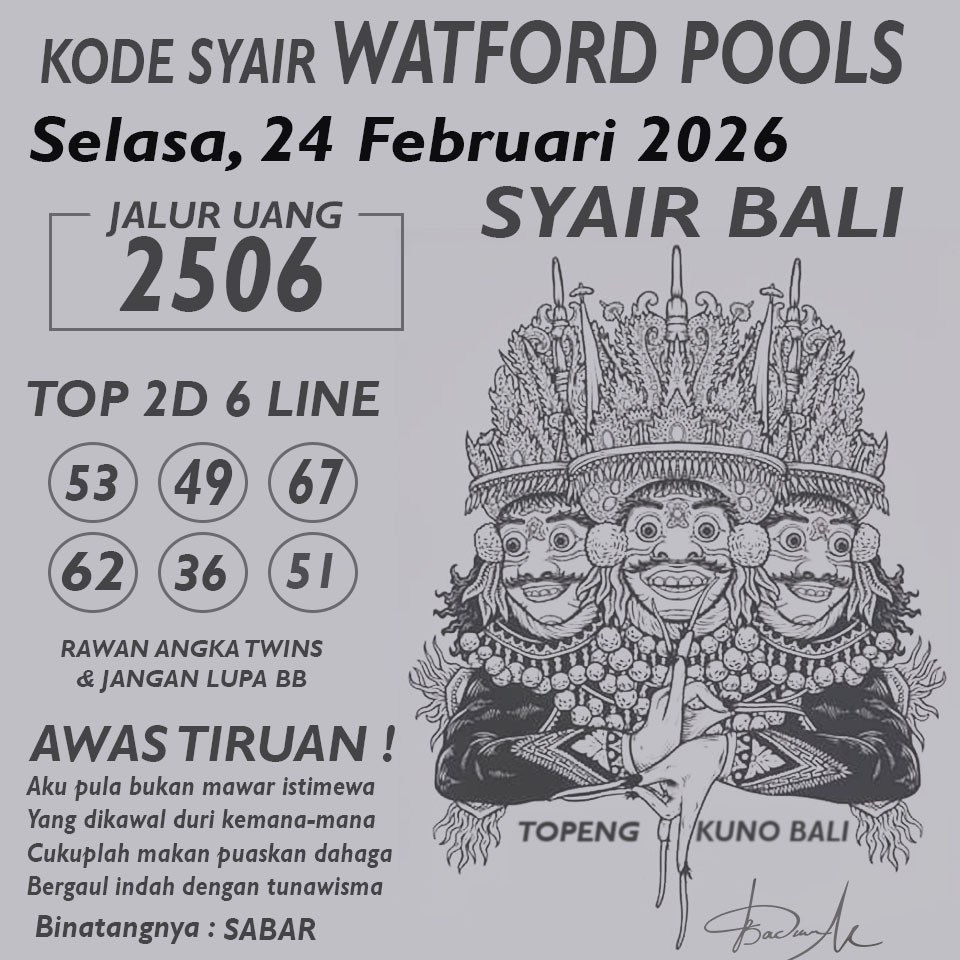 KODE SYAIR WATFORD POOLS
Selasa, 24 Februari 2026
SYAIR BALI
JALUR UANG
2506
TOP 2D 6 LINE
53 49 67
62 36 51
RAWAN ANGKA TWINS
& JANGAN LUPA BB
AWAS TIRUAN !
Aku pula bukan mawar istimewa
Yang dikawal duri kemana-mana
Cukuplah makan puaskan dahaga
Bergaul indah dengan tunawisma
Binatangnya : SABAR
TOPENG KUNO BALI